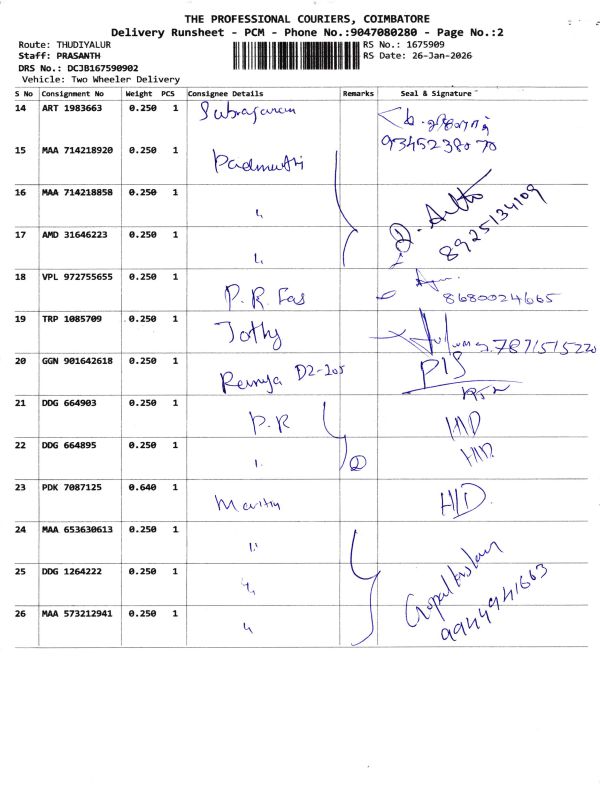 THE PROFESSIONAL COURIERS, COIMBATORE
Delivery Runsheet - PCM - Phone No.:9047080280 - Page No.:2
Route: THUDIYALUR RS No.: 1675909
Staff: PRASANTH RS Date: 26-Jan-2026
DRS No.: DCJB167590902
Vehicle: Two Wheeler Delivery
S No Consignment No Weight PCS Consignee Details Remarks Seal & Signature
14 ART 1983663 0.250 1
9345238070
15 MAA 714218920 0.250 1
16 MAA 714218858 0.250 1 "
8925134109
17 AMD 31646223 0.250 1 "
18 VPL 972755655 0.250 1 P.R. Fas
8680024665
19 TRP 1085709 0.250 1 Jothy 7871515220
20 GGN 901642618 0.250 1 Remya D2-205
21 DDG 664903 0.250 1 P.R H/D
22 DDG 664895 0.250 1 " 2 H/D
23 PDK 7087125 0.640 1 H/D
24 MAA 653630613 0.250 1 "
25 DDG 1264222 0.250 1 "
9944941663
26 MAA 573212941 0.250 1 "